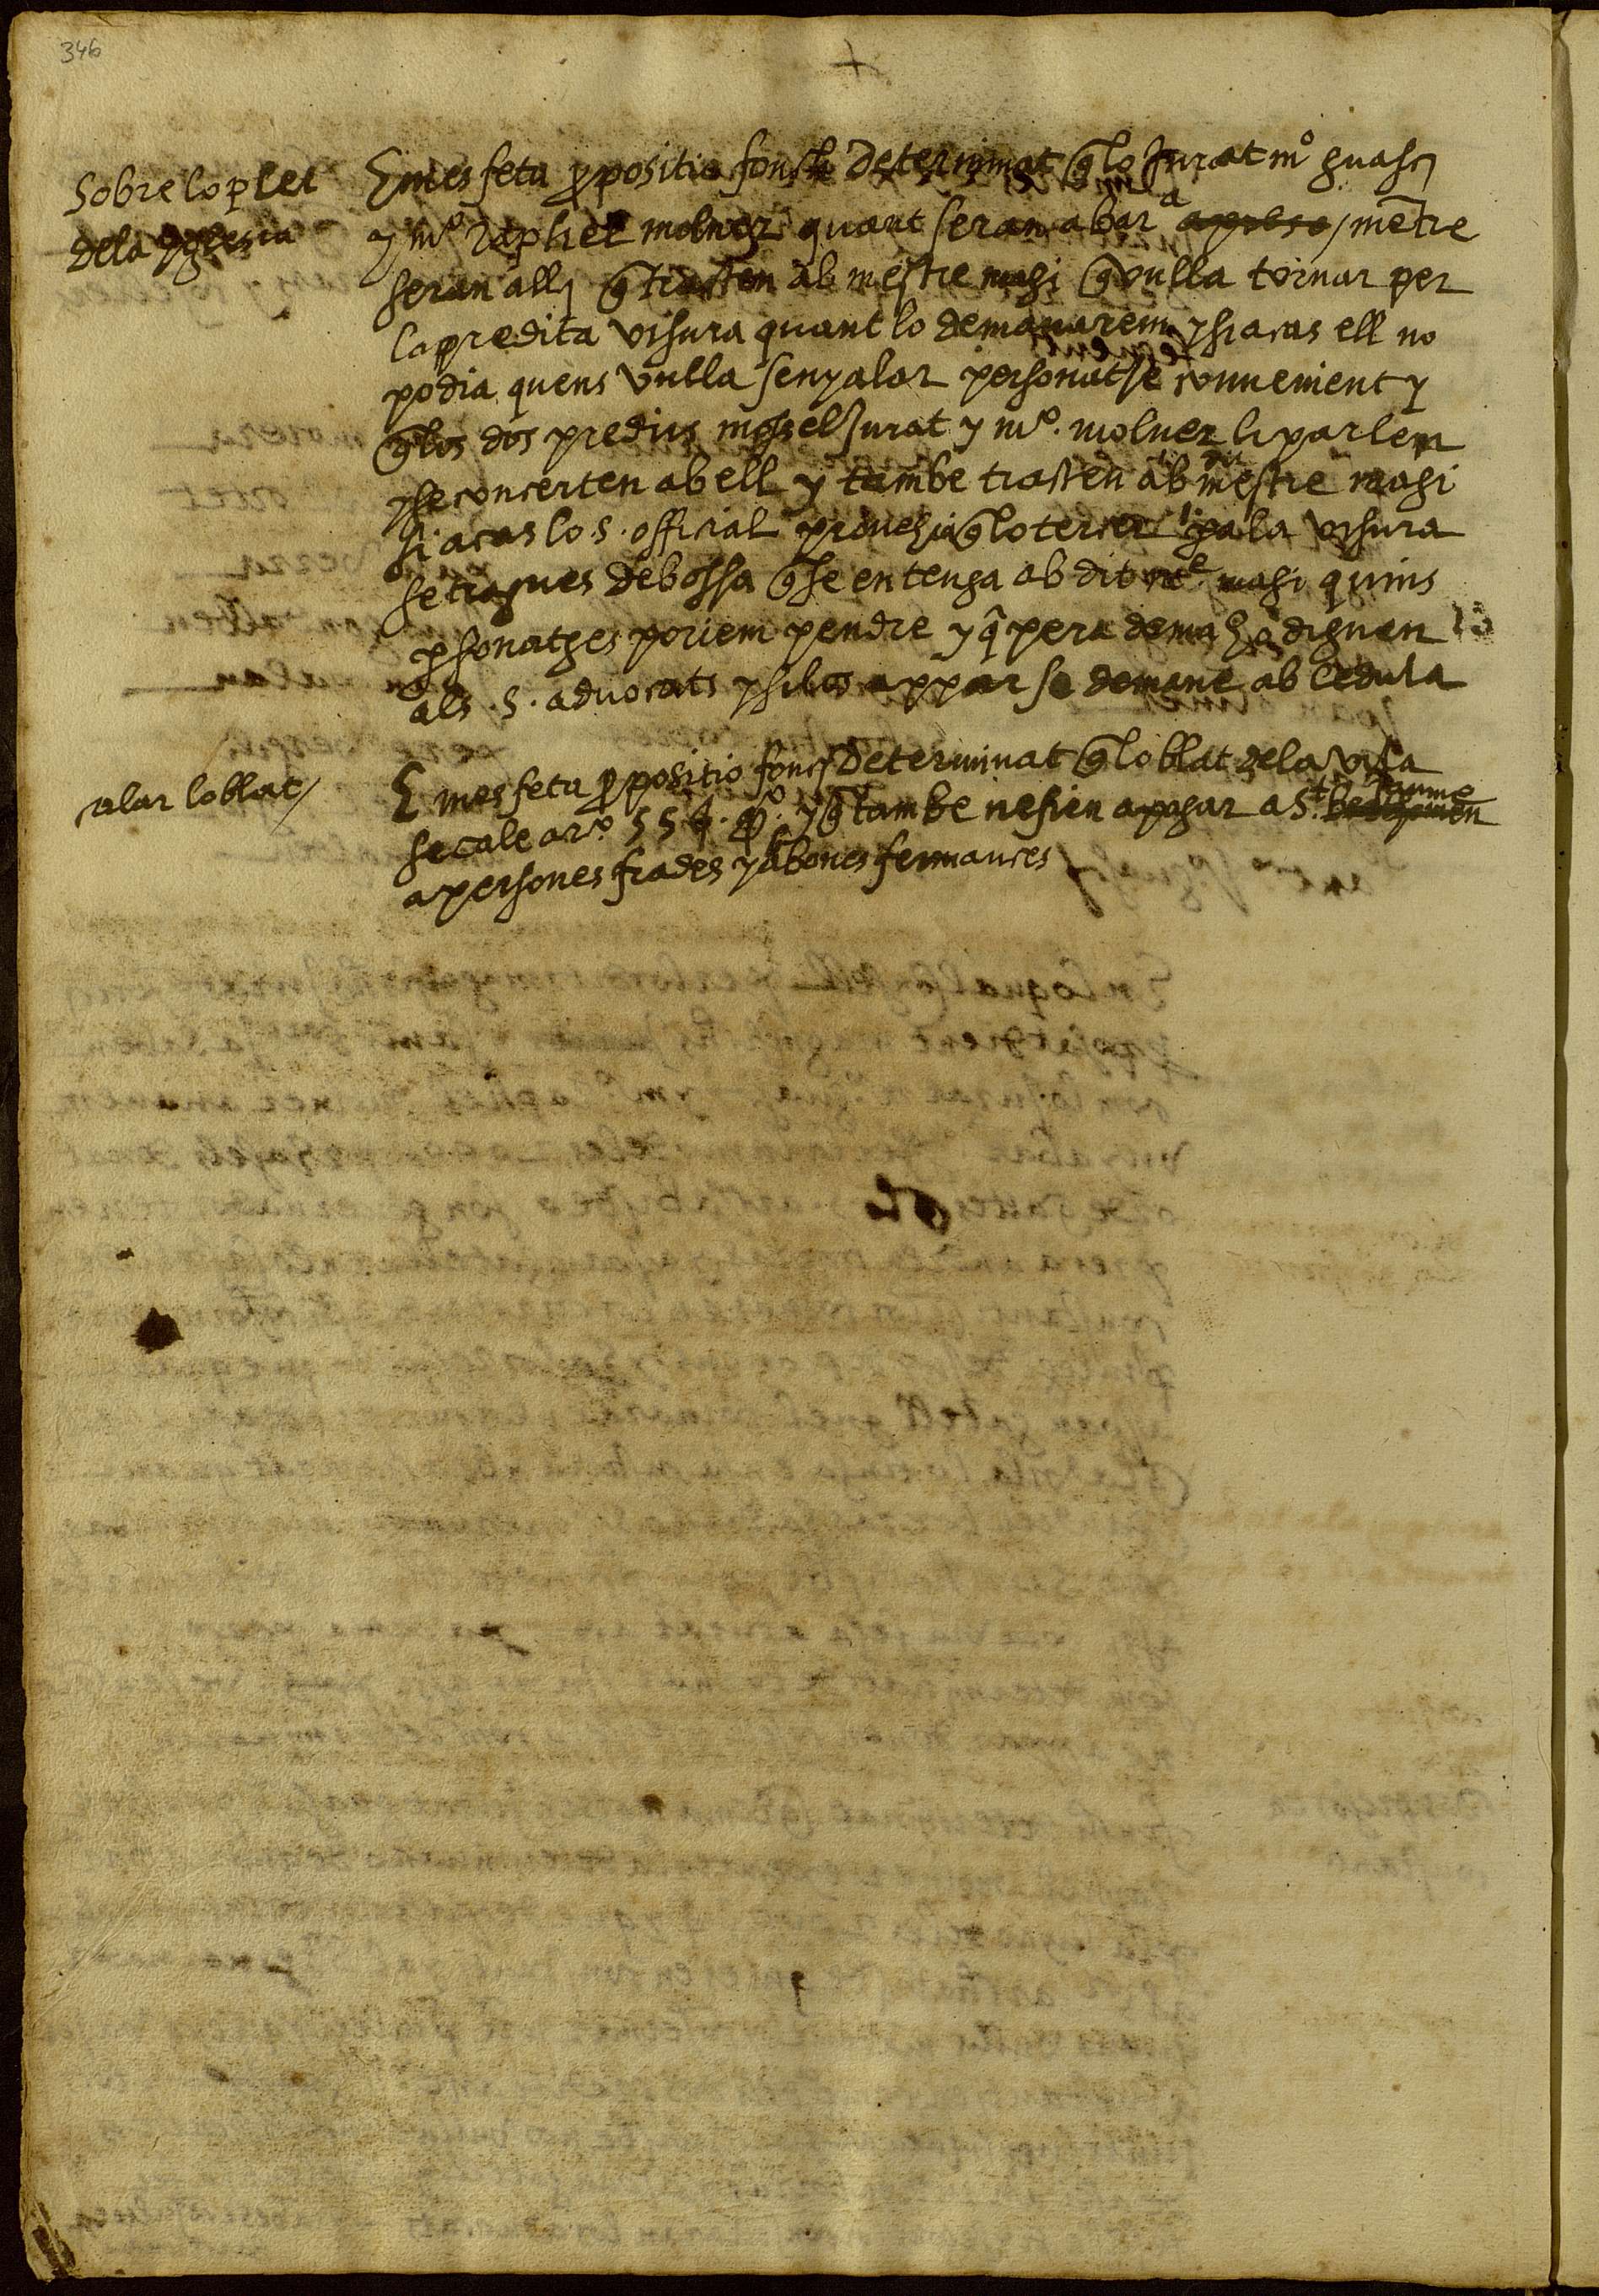 346
+
Sobre lo plet
dela yglesia
E mes feta ꝓpositio fonch determinat q̃ lo Jurat mº guasch
y mº Raphel molner quant seran a barª a̶p̶l̶e̶s̶o̶ / mẽtre
seran alli q̃ tracten ab mestre magi q̃ vulla tornar per
la predita visura quant lo demanarem y si acas ell no
podia quens vulla senyalar personatge convenient y
q̃ los dos predits mossel Jurat y mº. molner li parlen
y se concerten ab ell y tambe tracten ab mestre magi
si acas lo s. official provehia q̃ lo tercer ꝑa la visura
se tragues de bossa q̃ se entenga ab dit mᵉ magi quins
ꝑsonatges poriem pendre y q̃ pera dema diguen
als .s. advocats y sils appar se demane ab cedula
alar lo blat /
E mes feta ꝓpositio fonch determinat q̃ lo blat dela vila
se cale a rº. 55 y q̃ tambe ne fien a posar a St. Jaume
a persones fiades y ab bones fermances